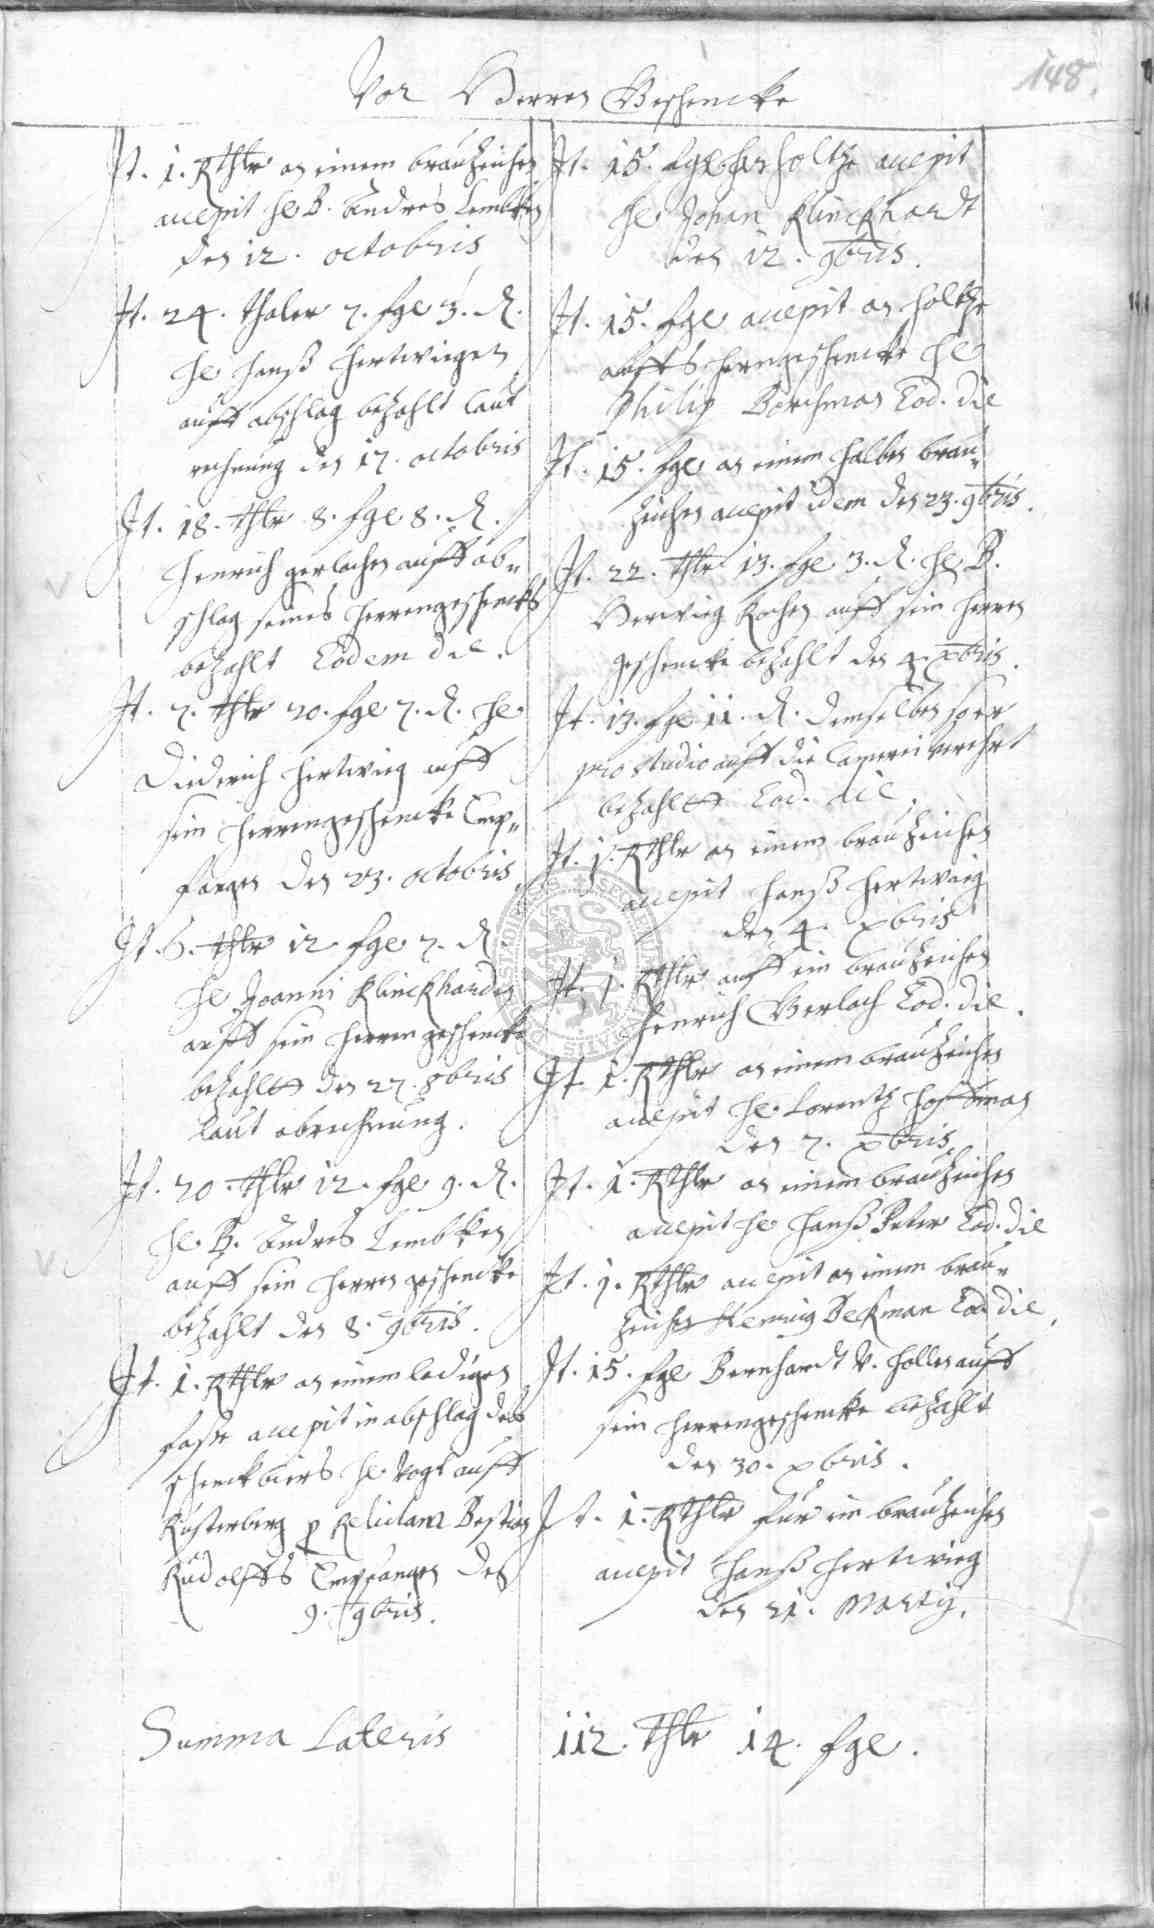 148.
Vor Herren Geschencke
It. 1. Rthlr an einem brauzeichen
accepit He B. Andres Lembken
den 12. octobris
It. 24. thaler 7. fgl 3. d.
He Hanß Hertwigen
auff abschlag bezahlt laut
rechnung den 17. octobris
It. 18. thlr 8. fgl 8. d.
Henrich gerlachen auff ab„
schlag seines herrengeschencks
bezahlt Eodem die.
It. 7. thlr 20. fgl 7. d. He
Diederich Hertwieg auff
sein herrengeschencke Emp„
fangen den 23. octobris
It. 6. thlr 12 fgl 7. d
He Joanni Klinckharden
auff sein herrengeschencke
bezahlt den 27. 8bris
laut abrechnung.
It. 20. thlr 12. fgl 9. d.
He B. Andres Lembken
auff sein herren geschencke
bezahlt den 8. 9bris.
It. 1. Rthlr an einem ledigen
faße accepit in abschlag des
schenckbiers He Vogt auff
Rusterberg p Relictam Bestian
Rudolffs Empfangen den
9. 9bris.
It. 15. fgl an holtze accepit
He Johan Klinckhardt
den 12. 9bris.
It. 15. fgl accepit an holtze
auffs herrngeschencke He
Philip Borchman Eod. die
It. 15. fgl an einem halben brau„
zeichen accepit idem den 23. 9bris.
It. 22. thlr 13. fgl 3. d. He B.
Herwieg Kochen auff sein herren
geschencke bezahlt den 4. xbris.
It. 13. fgl 11. d. demselben so er
pro studio auff die Camerei verehrt
bezahlt Eod. die.
It. 1. Rthlr an einem brauzeichen
accepit Hanß Hertwieg
den 4. xbris
It. 1. Rthlr auff ein brauzeichen
Henrich Gerlach Eod. die.
It. 1. Rthlr an einem brauzeichen
accepit He Lorentz Hoffman
den 7. xbris.
It. 1. Rthlr an einem brauzeichen
accepit He Hanß Peter Eod. die
It. 1. Rthlr accepit an einem brau„
zeichen Henning Deckman Eod. die.
It. 15. fgl Bernhardt V. Hollen auff
sein herrengeschencke bezahlt
den 30. xbris.
It. 1. Rthlr für ein brauzeichen
accepit Hanß Hertwieg
den 21. Martij.
Summa Lateris 112. thlr 14. fgl.